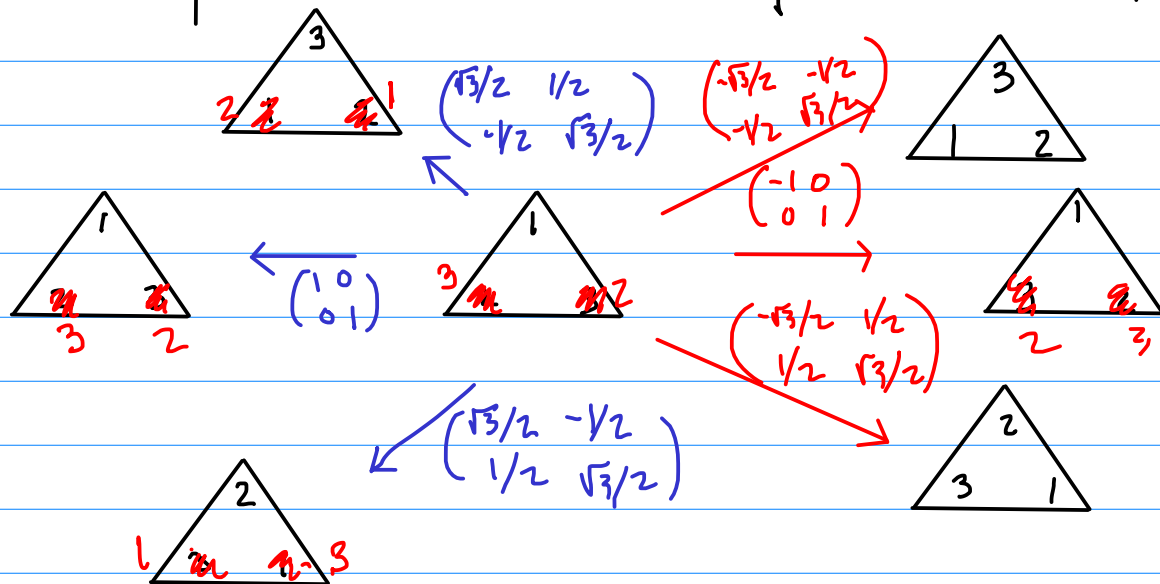 3
2 1
(√3/2 1/2
-1/2 √3/2)
(-√3/2 -1/2
-1/2 √3/2)
3
1 2
1
3 2
(1 0
0 1)
1
3 2
(-1 0
0 1)
1
2 3
(-√3/2 1/2
1/2 √3/2)
(√3/2 -1/2
1/2 √3/2)
2
3 1
2
1 3